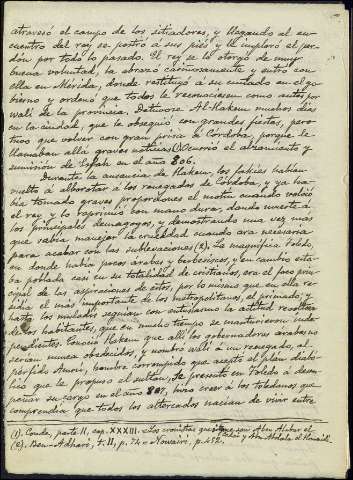 atravesó el campo de los sitiadores, y llegando al en-
cuentro del rey se postró á sus piés y le imploró el per-
dón por todo lo pasado. El rey se le otorgó de muy
buena voluntad, la abrazó cariñosamente y entró con
ella en Mérida, donde restituyó á su cuñado en el go-
bierno y ordenó que todos le reconociesen como autén
walí de la provincia. Detúvose Al-Hakem muchos días
en la ciudad, que le obsequió con grandes fiestas, pero
tuvo que volver con gran prisa á Córdoba, porque le
llamaban allá graves noticias (1). Ocurrió el alzamiento y
sumisión de Esfah en el año 806.
Durante la ausencia de Hakem, los fakíes habían
vuelto á alborotar á los renegados de Córdoba, y ya ha-
bía tomado graves proporciones el motín cuando volvió
el rey y lo reprimió con mano dura, dando muerte á
los principales demagogos, y demostrando una vez más
que sabía manejar la crueldad cuando era necesaria
para acabar con las sublevaciones (2). La magnífica Toledo,
en donde había pocos árabes y berberiscos, y en cambio esta-
ba poblada casi en su totalidad de cristianos, era el foco prin-
cipal de las aspiraciones de éstos, por lo mismo que en ella re-
sidía el más importante de los metropolitanos, el primado; y
hasta los muladíes seguían con entusiasmo la actitud
de los habitantes, que en mucho tiempo se mantuvieron
pendientes. Conocía Hakem que allí los gobernadores árabes no
serían nunca obedecidos, y nombró walí á un renegado, al
pérfido Amrú, hombre corrompido que aceptó el plan diabó-
lico que le propuso el sultán. Se presentó en Toledo á desem-
peñar su cargo en el año 807, hizo creer á los toledanos que
comprendía que todos los altercados nacían de vivir entre
(1). Conde, parte II, cap. XXXIII. Los cronistas que son Aben Alabar el
y Abu Abdala el Homaidi.
(2). Ben-Adhari, t. II, p. 74. Nowairi, p. 452.